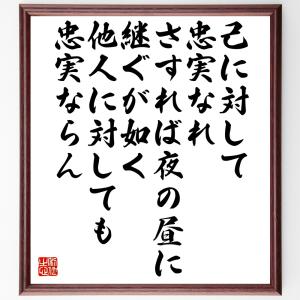 己に対して
忠実なれ
さすれば夜の昼に
継ぐが如く
他人に対しても
忠実ならん